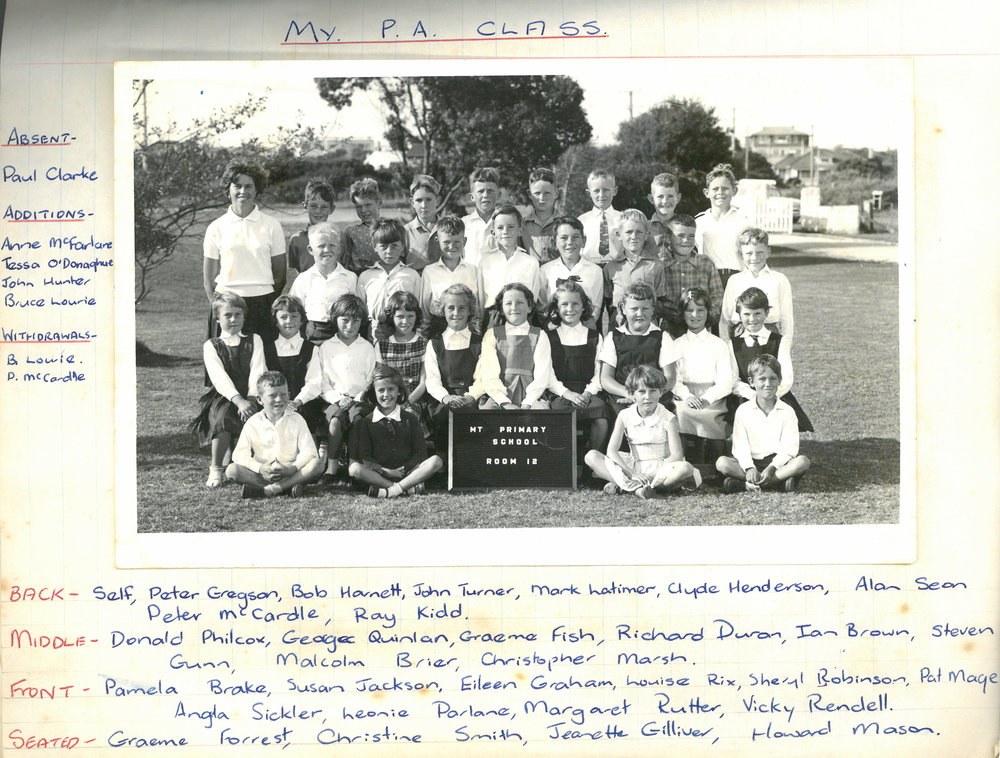 My. P.A. CLASS.
ABSENT-
Paul Clarke
ADDITIONS-
Anne McFarlane
Tessa O'Donaghue
John Hunter
Bruce Lourie
WITHDRAWALS-
B. Lourie.
D. McCardle
MT PRIMARY
SCHOOL
ROOM 12
BACK - Self, Peter Gregson, Bob Harnett, John Turner, Mark Latimer, Clyde Henderson, Alan Sean
Peter McCardle, Ray Kidd.
MIDDLE - Donald Philcox, George Quinlan, Graeme Fish, Richard Duran, Ian Brown, Steven
Gunn, Malcolm Brier, Christopher Marsh.
FRONT - Pamela Brake, Susan Jackson, Eileen Graham, Louise Rix, Sheryl Robinson, Pat Mage
Angla Sickler, Leonie Parlane, Margaret Rutter, Vicky Rendell.
SEATED - Graeme Forrest, Christine Smith, Jeanette Gilliver, Howard Mason.